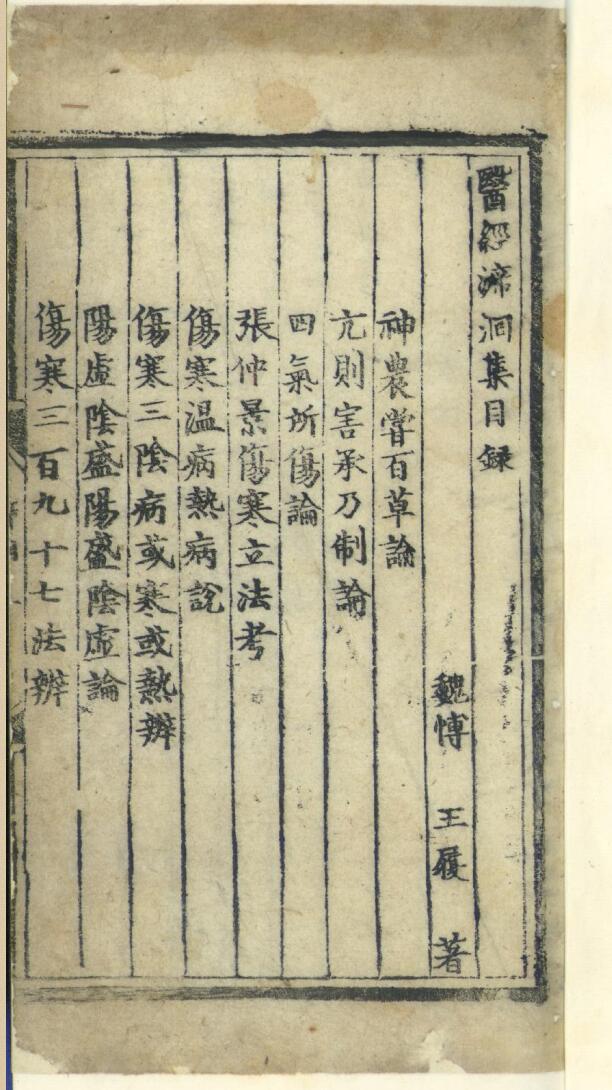 醫經溯洄集目録
魏愽 王履 著
神農嘗百草論
亢則害承乃制論
四氣所傷論
張仲景傷寒立法考
傷寒温病熱病說
傷寒三陰病或寒或熱辨
陽虛陰盛陽盛陰虛論
傷寒三百九十七法辨